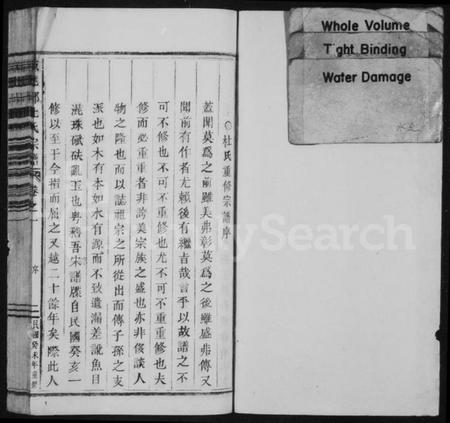 杜氏重修宗譜序
蓋聞莫為之前雖美弗彰莫為之後雖盛弗傳又
聞前有作者尤賴後有繼者哉言乎以故譜之不
可不修也尤不可不重修也尤不可不重修也夫
修而必重重者非誇美宗族之盛也亦非侈談人
物之隆也而以誌祖宗之所從出而傳子孫之支
派也如木有本如水有源而不致遺漏差訛魚目
混珠碔砆亂玉也粵稽吾宋譜牒自民國癸亥一
修以至于今指而屈之又越二十餘年矣際此人
杜氏宗譜 卷之一 序 二 民國癸未年重修
Whole Volume
Tight Binding
Water Damage
MySearch